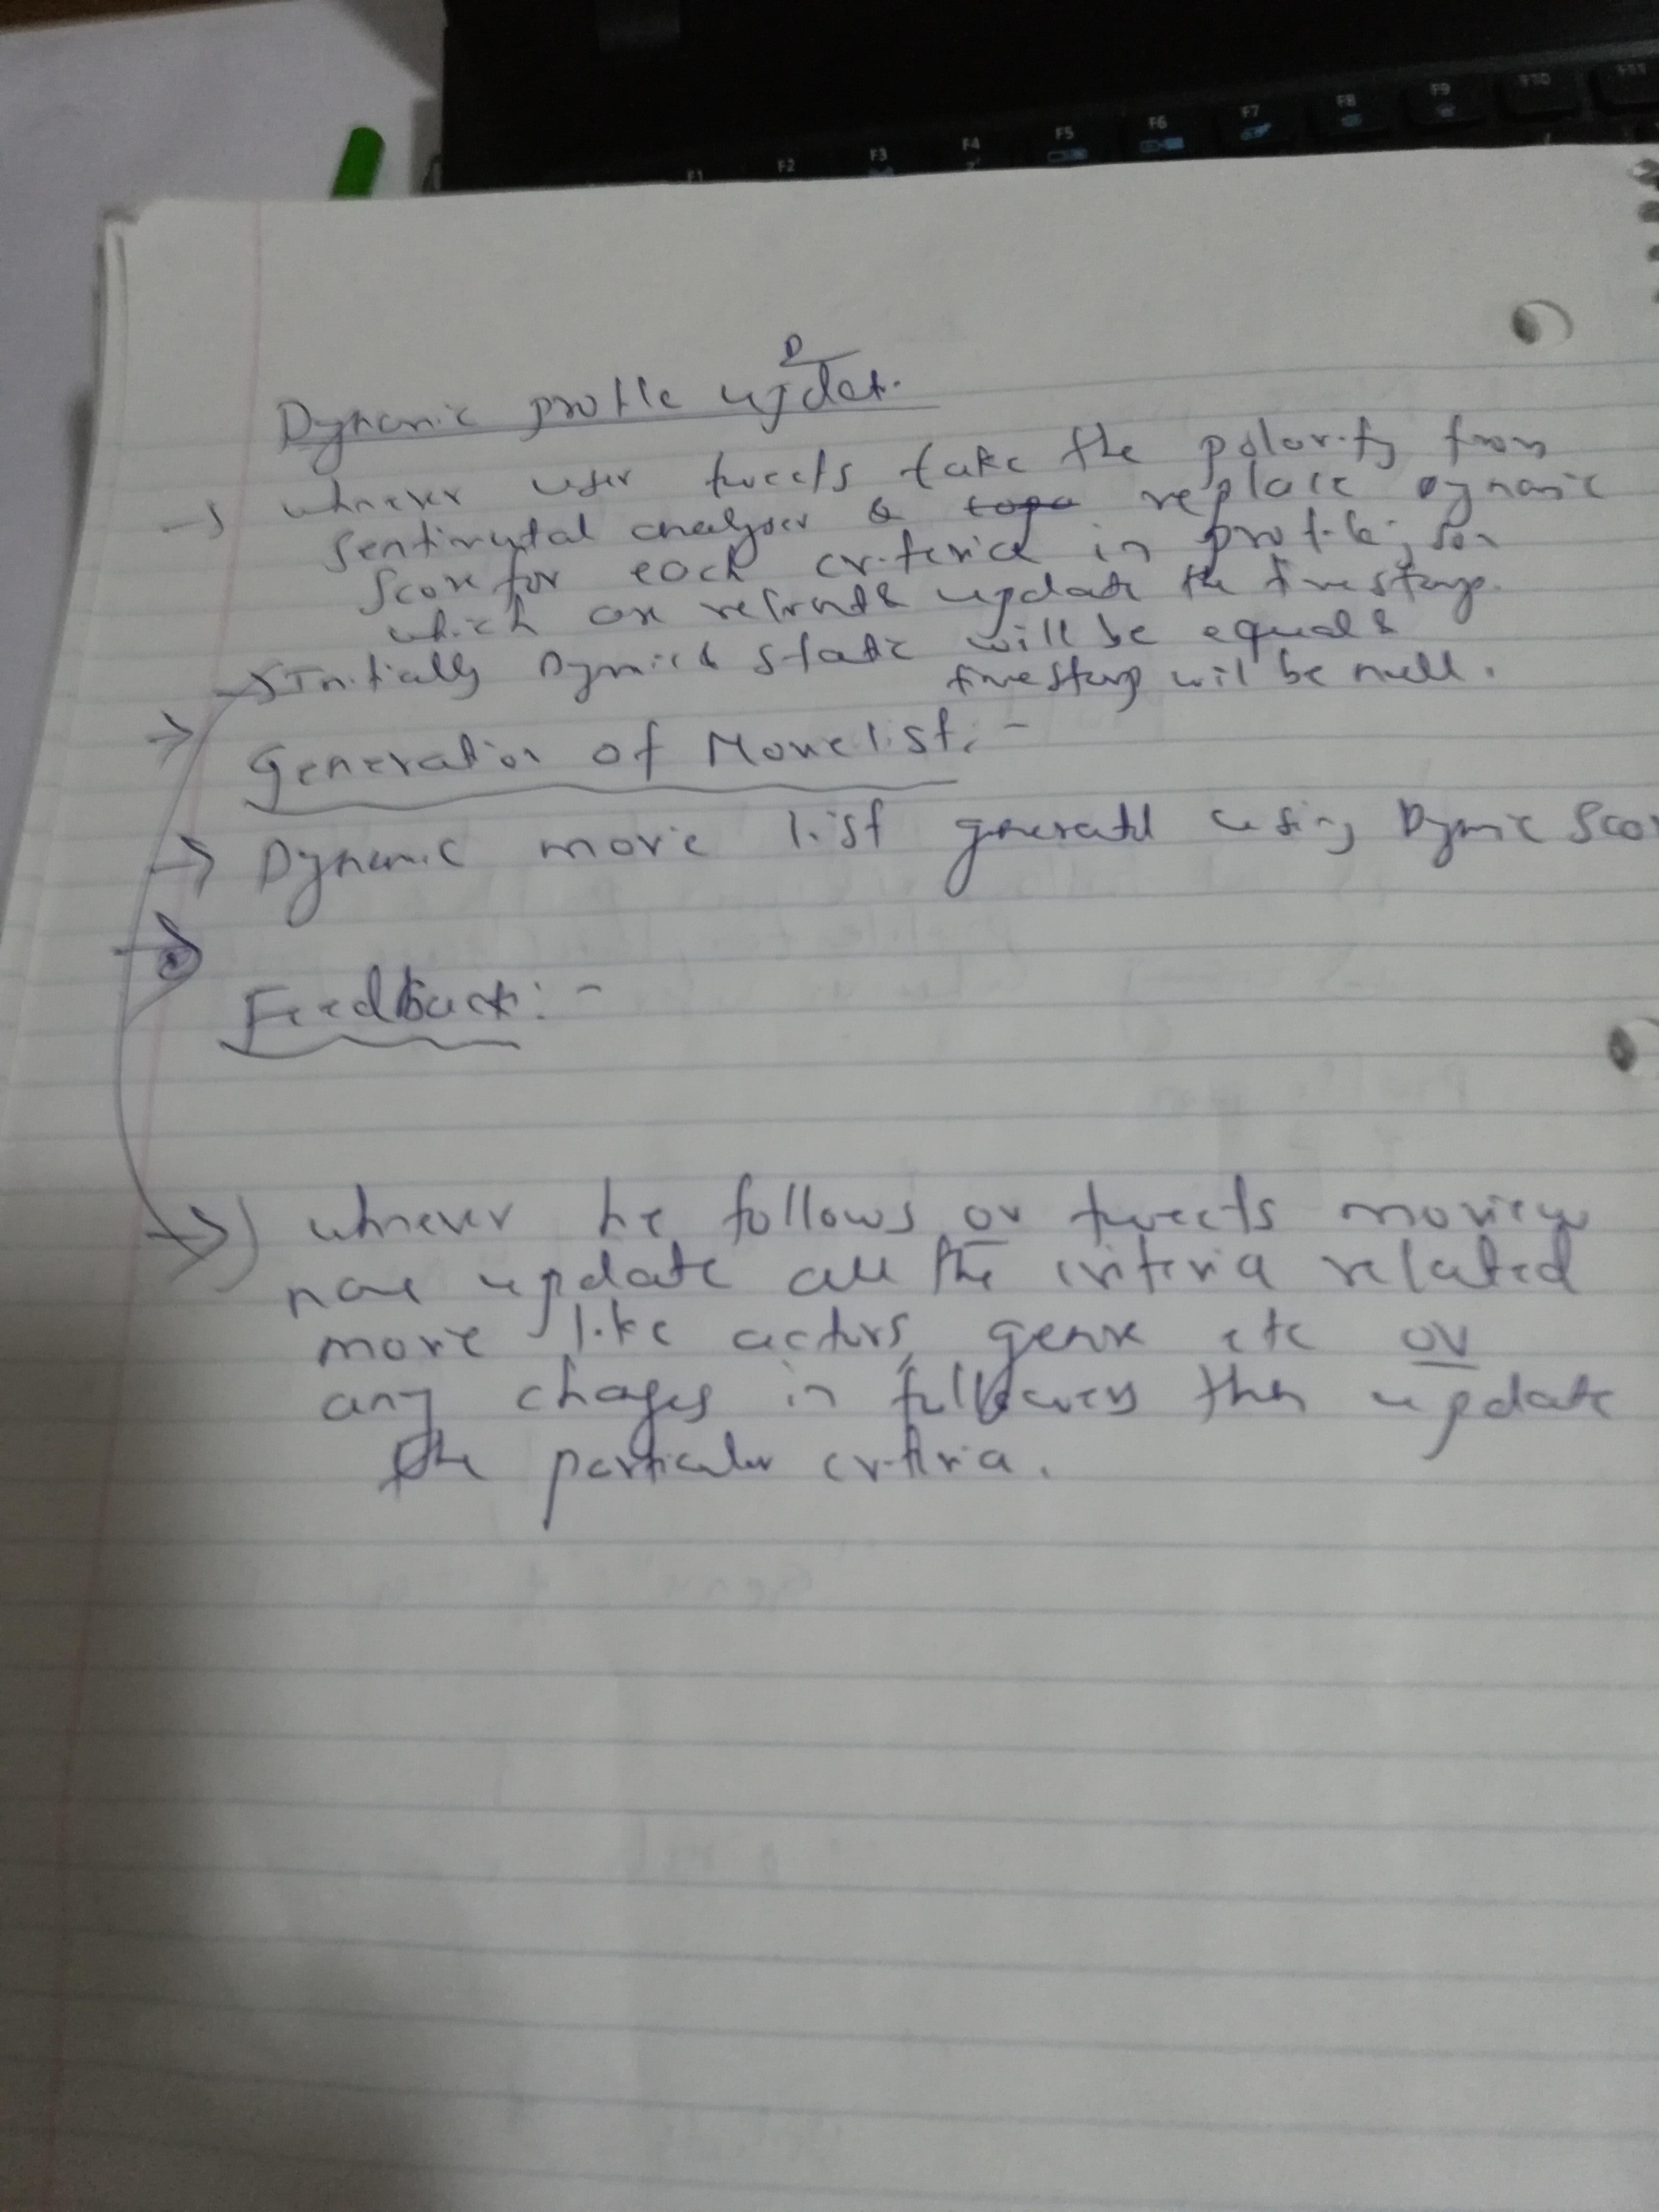 F1 F2 F3 F4 F5 F6 F7 F8 F9 F10 F11
Dynamic profile updat.
→ whnever user tweets take the polarity from
sentimental analyser & replace Dynamic
score for each criteria in profile, for
which are & update the timestamp.
→ Initially Dynmic & static will be equal &
timestamp will be null.
→ Generation of Movie list:-
→ Dynamic movie list generated using Dynmic Scor
→
Feedback:-
→ whnever he follows or tweets movie
update all the criteria related
movie like actors, genre etc or
any chages in followers then update
the particular critria.